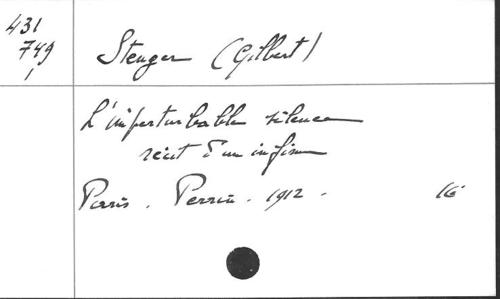 431
749
1
Stenger (Gilbert)
L'imperturbable silence
récit d'un infirme
Paris. Perrin. 1912.
16°